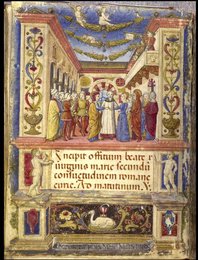 Incipit offitium beate v
uirginis marie secundũ
consuetudinem roman
curie. Ad matutinum. V.